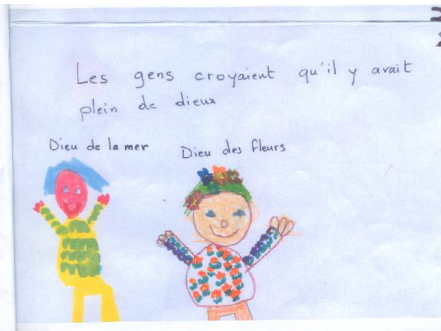 Les gens croyaient qu'il y avait
plein de dieux
Dieu de la mer
Dieu des fleurs